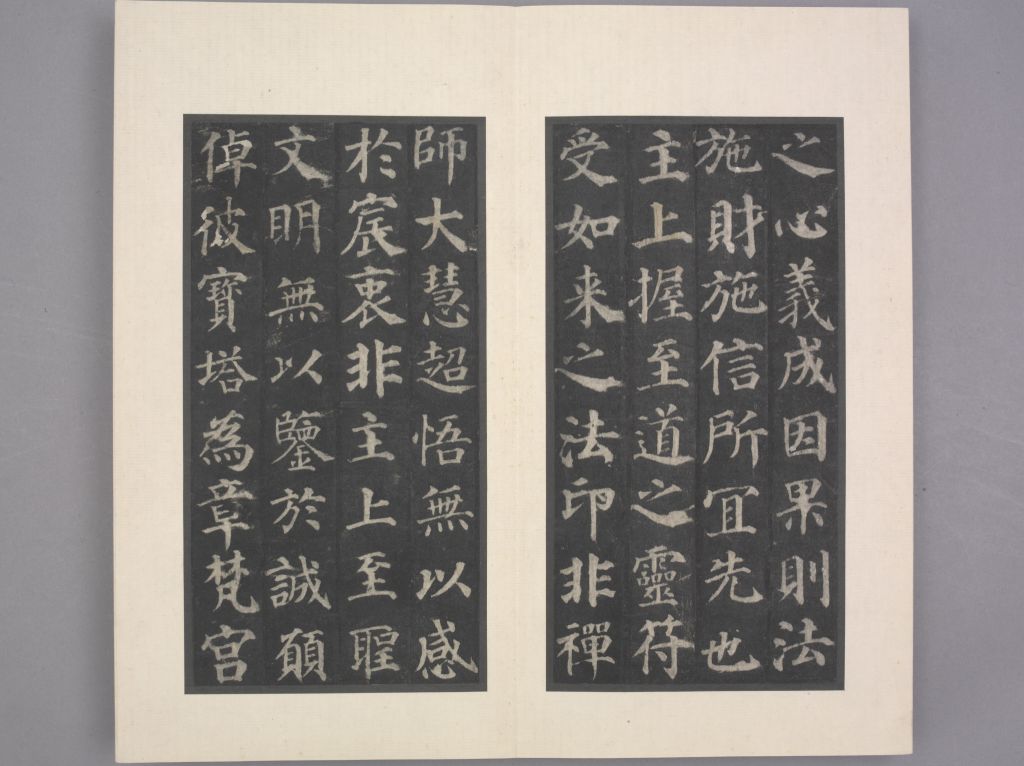 之心義成因果則法
施財施信所冝先也
主上握至道之靈符
受如来之法印非禪
師大慧超悟無以感
於宸衷非主上至聖
文明無以鑒於誠願
倬彼寶塔為章梵宫